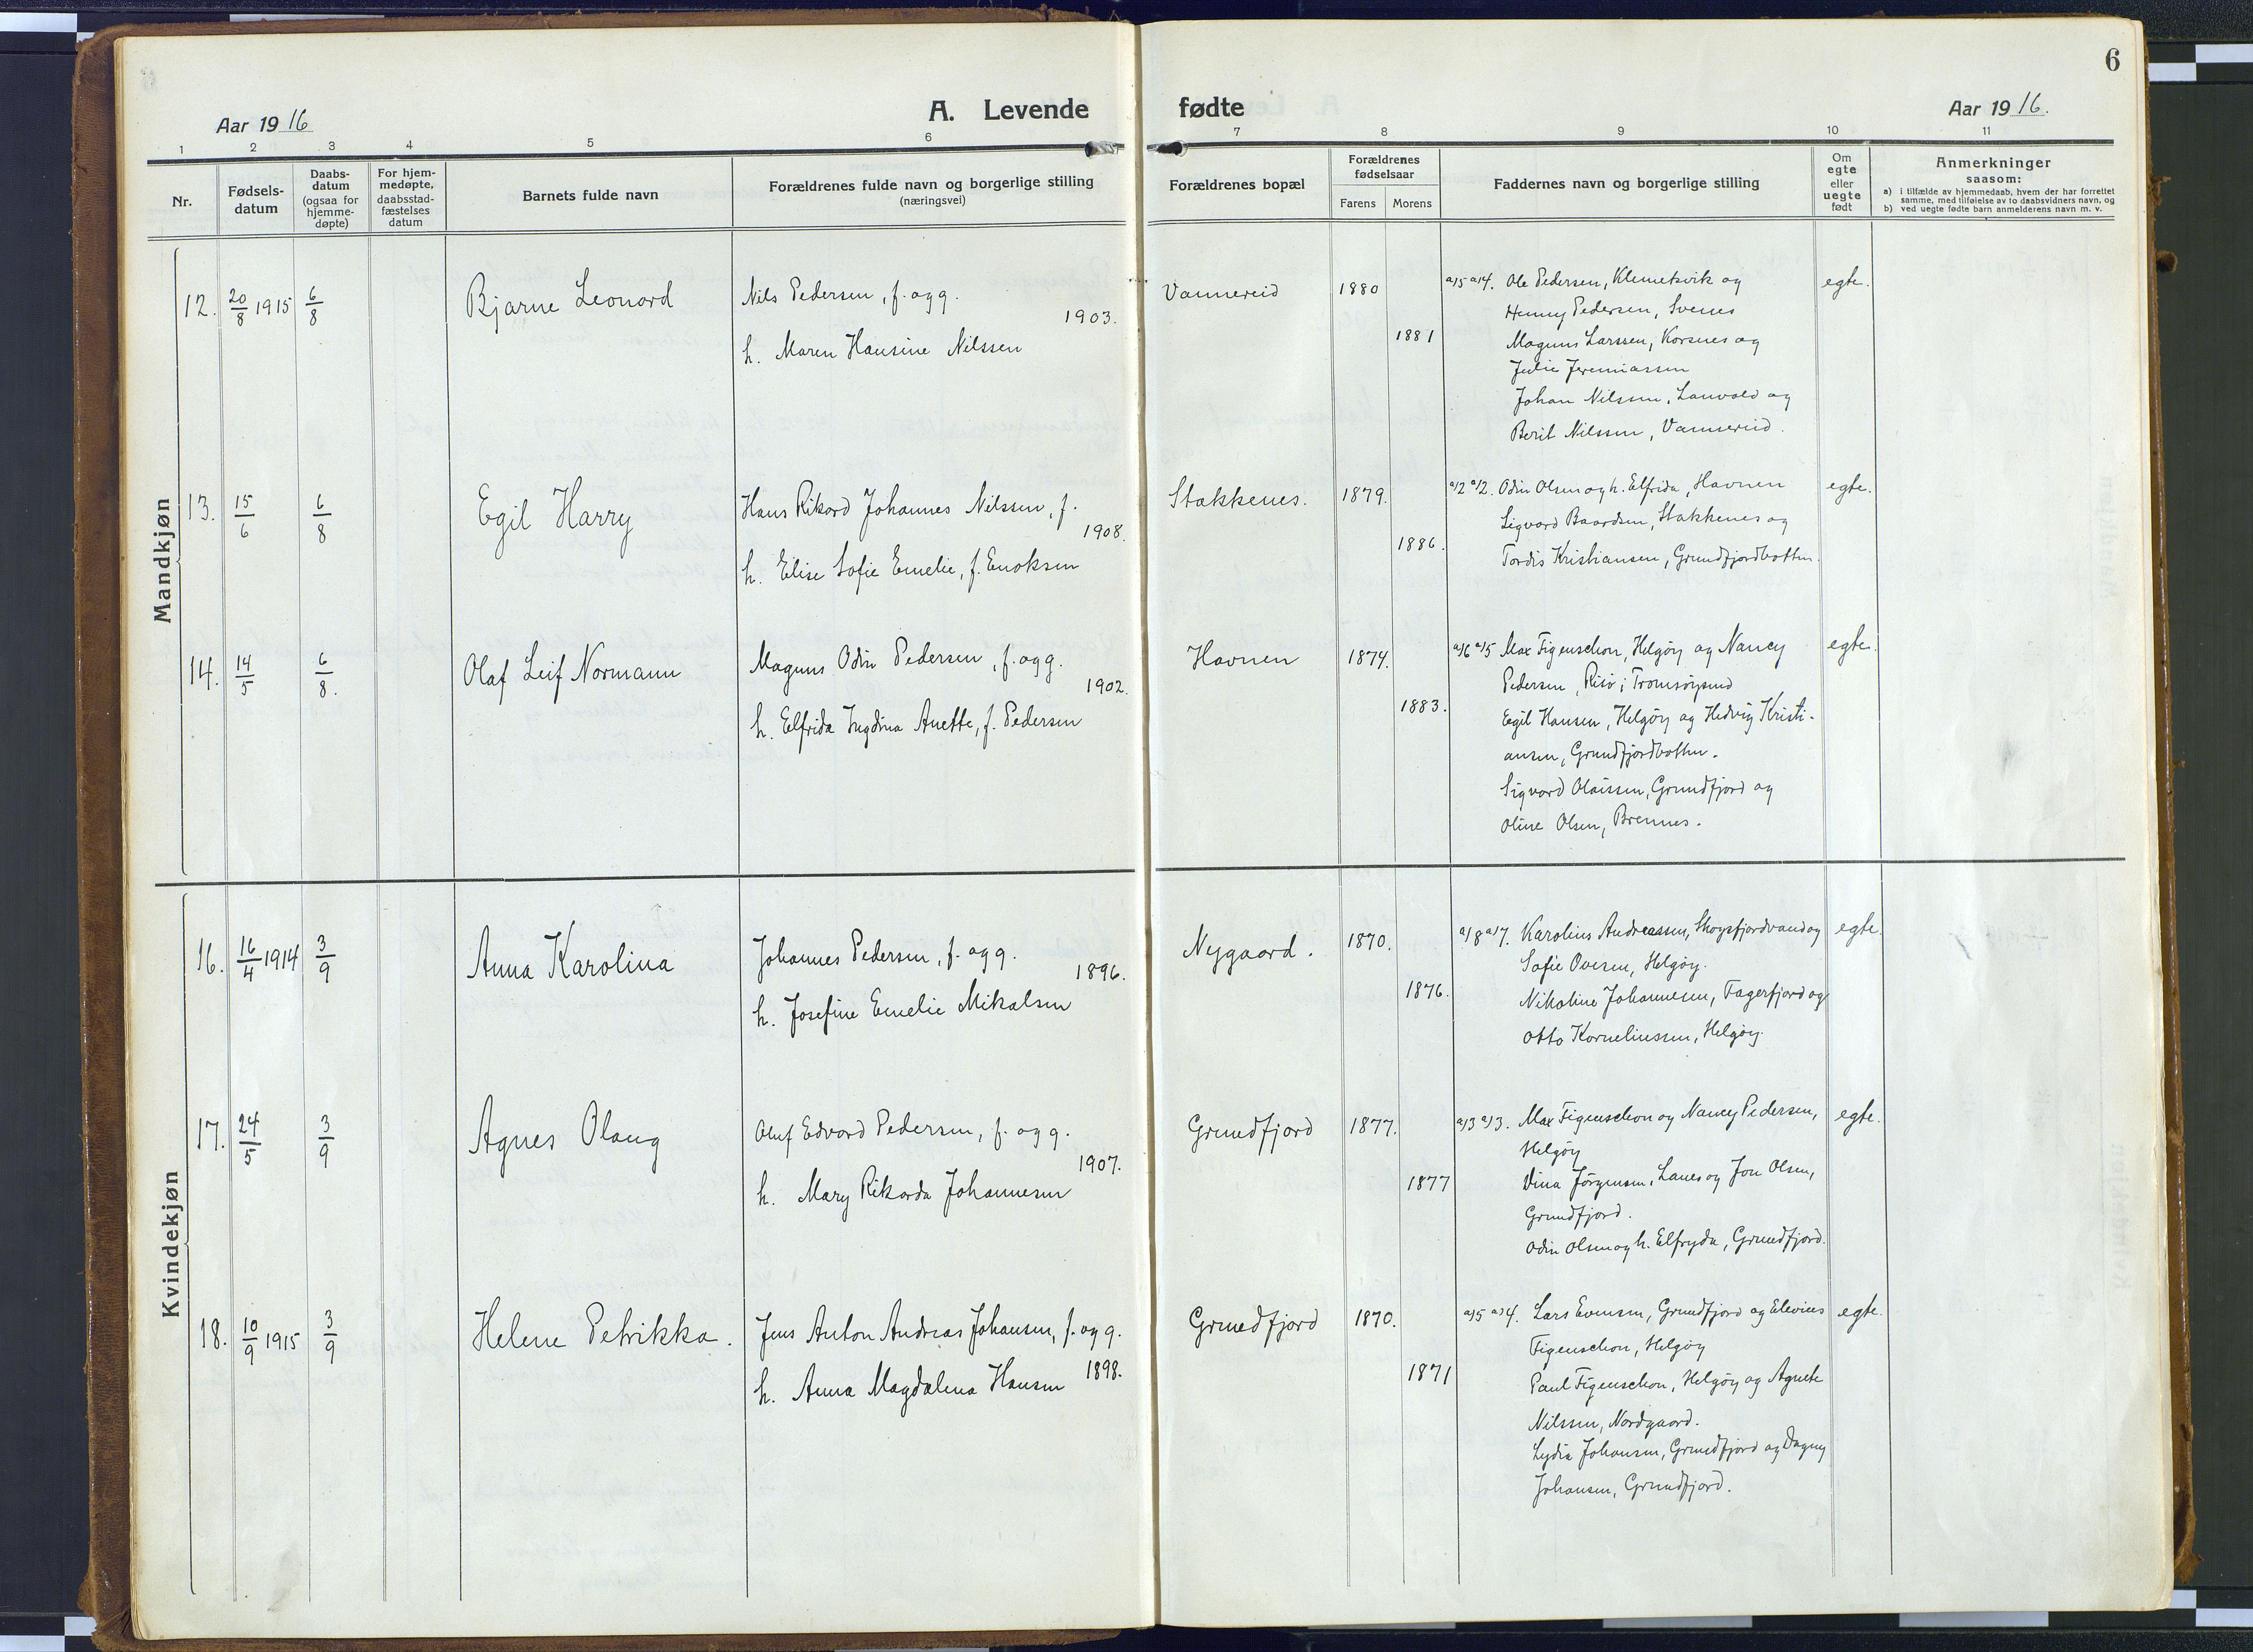 6
Aar 1916
A. Levende fødte
Aar 1916.
1 2 3 4 5 6 7 8 9 10 11
Nr.
Fødsels-
datum
Daabs-
datum
(ogsaa for
hjemme-
døpte)
For hjem-
medøpte,
daabsstad-
fæstelses
datum
Barnets fulde navn
Forældrenes fulde navn og borgerlige stilling
(næringsvei)
Forældrenes bopæl
Forældrenes
fødselsaar
Farens Morens
Faddernes navn og borgerlige stilling
Om
egte
eller
uegte
født
Anmerkninger
saasom:
a) i tilfælde av hjemmedaab, hvem der har forrettet
samme, med tilføielse av to daabsvidners navn, og
b) ved uegte fødte barn anmelderens navn m. v.
Mandkjøn
12. 20/8 1915 6/8 Bjarne Leonard
Nils Pedersen, f. og g.
1903.
h. Maren Hansine Nilssen
Vannereid 1880
1881
a/5 a/4. Ole Pedersen, Klemetsvik og
Henny Pedersen, Svenes
Magnus Larssen, Korsnes og
Julie Jeremiassen
Johan Nilssen, Lanvold og
Berit Nilssen, Vannereid.
egte.
13. 15/6 6/8 Egil Harry
Hans Rikard Johannes Nilssen, f.
1908.
h. Elise Sofie Emelie, f. Enoksen
Stakkenes. 1879.
1886.
a/2 a/2. Odin Olsen og h. Elfrida, Havnen
Sigvard Baardsen, Stakkenes og
Tordis Kristiansen, Grundfjordbotten.
egte.
14. 14/5 6/8. Olaf Leif Normann
Magnus Odin Pedersen, f. og g.
1902.
h. Elfrida Ingdina Anette, f. Pedersen
Havnen 1874.
1883.
a/6 a/5 Max Figenschou, Helgøy og Nancy
Pedersen, Risø i Tromsøysund
Egil Hansen, Helgøy og Hedvig Kristi-
ansen, Grundfjordbotten.
Sigvard Olaissen, Grundfjord og
Oline Olsen, Brennes.
egte.
Kvindekjøn
16. 16/4 1914 3/9 Anna Karolina
Johannes Pedersen, f. og g.
1896.
h. Josefine Emelie Mikalsen
Nygaard. 1870.
1876.
a/8 a/7. Karolius Andreassen, Skogsfjordvand og
Sofie Ovesen, Helgøy.
Nikoline Johannesen, Fagerfjord og
Otto Korneliussen, Helgøy.
egte.
17. 24/5 3/9 Agnes Olaug
Oluf Edvard Pedersen, f. og g.
1907.
h. Mary Rikarda Johannesen
Grundfjord 1877.
1877
a/3 a/3. Max Figenschou og Nancy Pedersen,
Helgøy
Dina Jørgensen, Lanes og Jon Olsen,
Grundfjord.
Odin Olsen og h. Elfryda, Grundfjord.
egte.
18. 10/9 1915 3/9 Helene Petrikka.
Jens Anton Andreas Johansen, f. og g.
1898.
h. Anna Magdalena Hansen
Grundfjord 1870.
1871
a/5 a/4. Lars Evensen, Grundfjord og Elevine
Figenschou, Helgøy
Paul Figenschou, Helgøy og Agnete
Nilssen, Nordgaard.
Lydia Johansen, Grundfjord og Dagny
Johansen, Grundfjord.
egte.